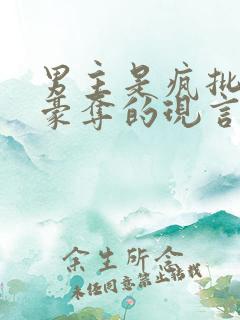 男主是疯批
豪夺的现言
余生所念
未经同意禁止转载